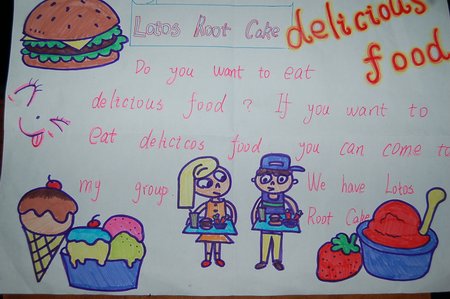 Lotos Root Cake
delicious
food
Do you want to eat
delicious food ? If you want to
eat delicicos food you can come to
my group. We have Lotos
Root Cake